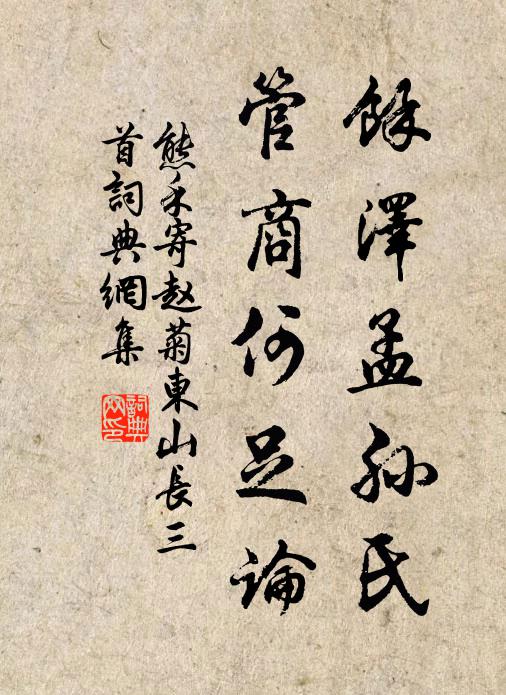 餘澤孟孫氏
管商何足論
熊禾寄赵菊東山長三
首詞典網集
詞典網印